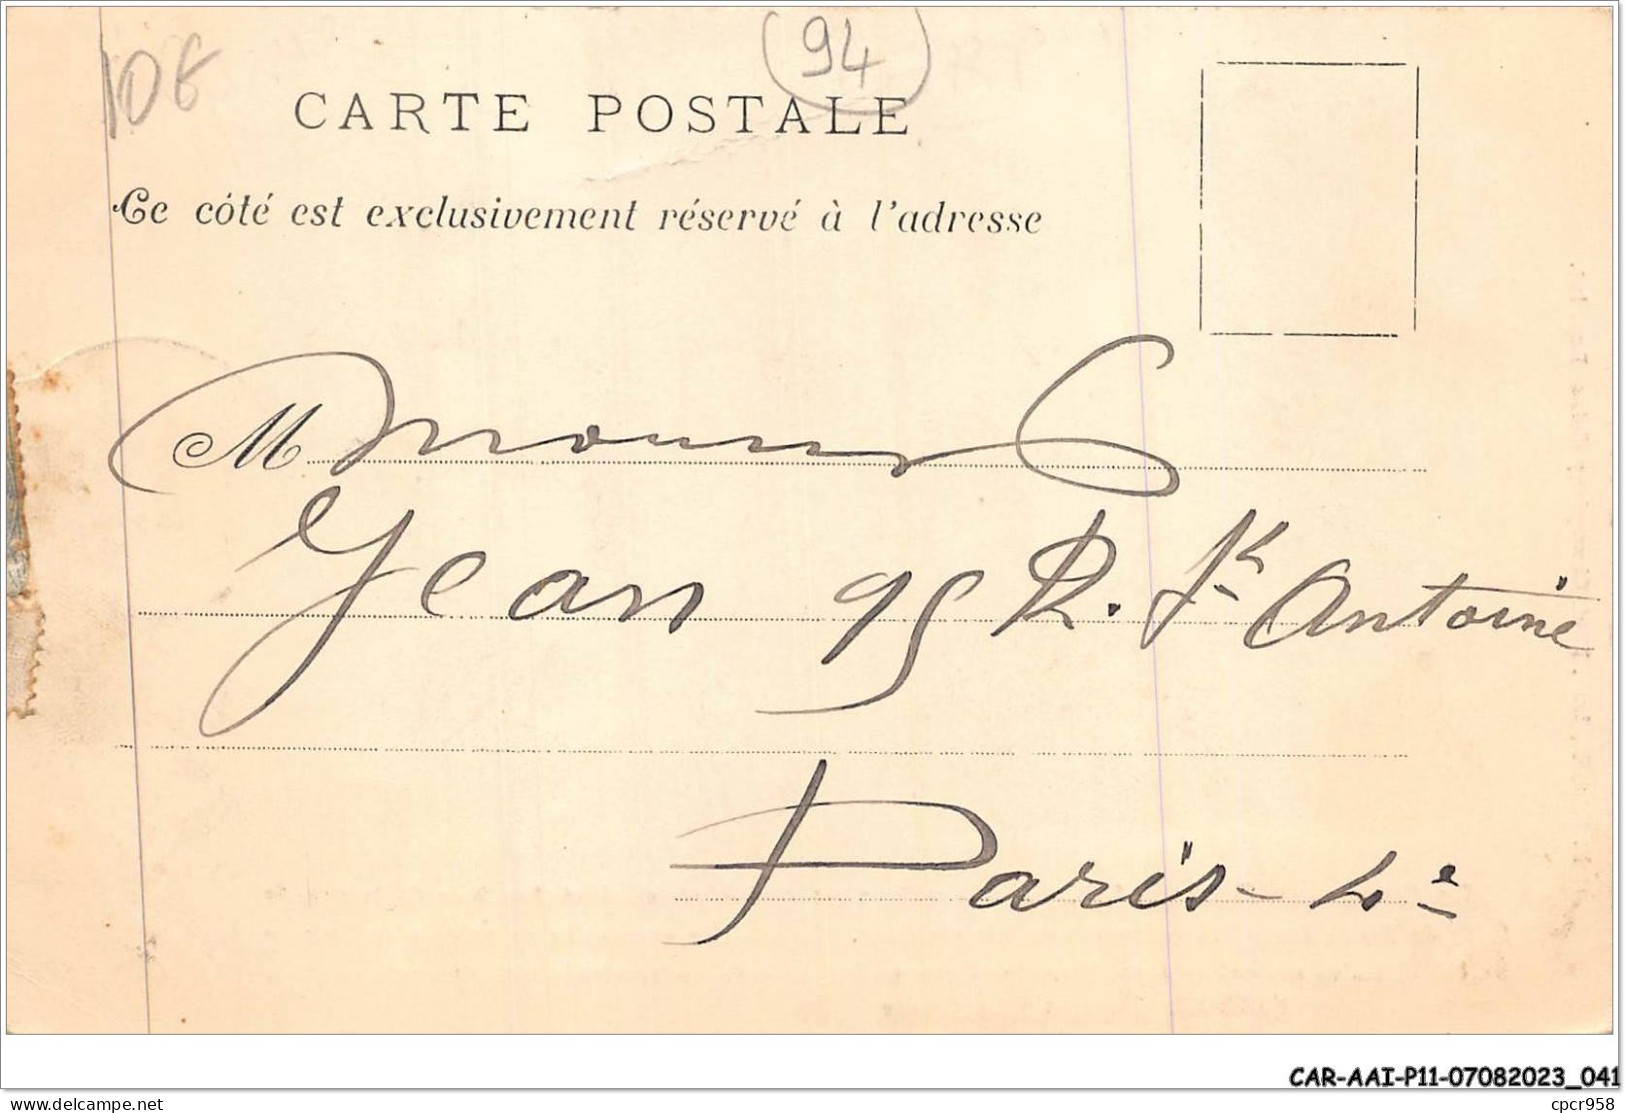 10€
94
CARTE POSTALE
Ce côté est exclusivement réservé à l'adresse
M
Jean 95 R. St Antoine
Paris - 4e
CAR-AAI-P11-07082023_041
delcampe.net
cpcr958